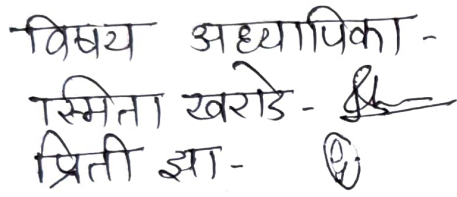 विषय अध्यापिका -
स्मिता खराडे -
प्रिती झा -